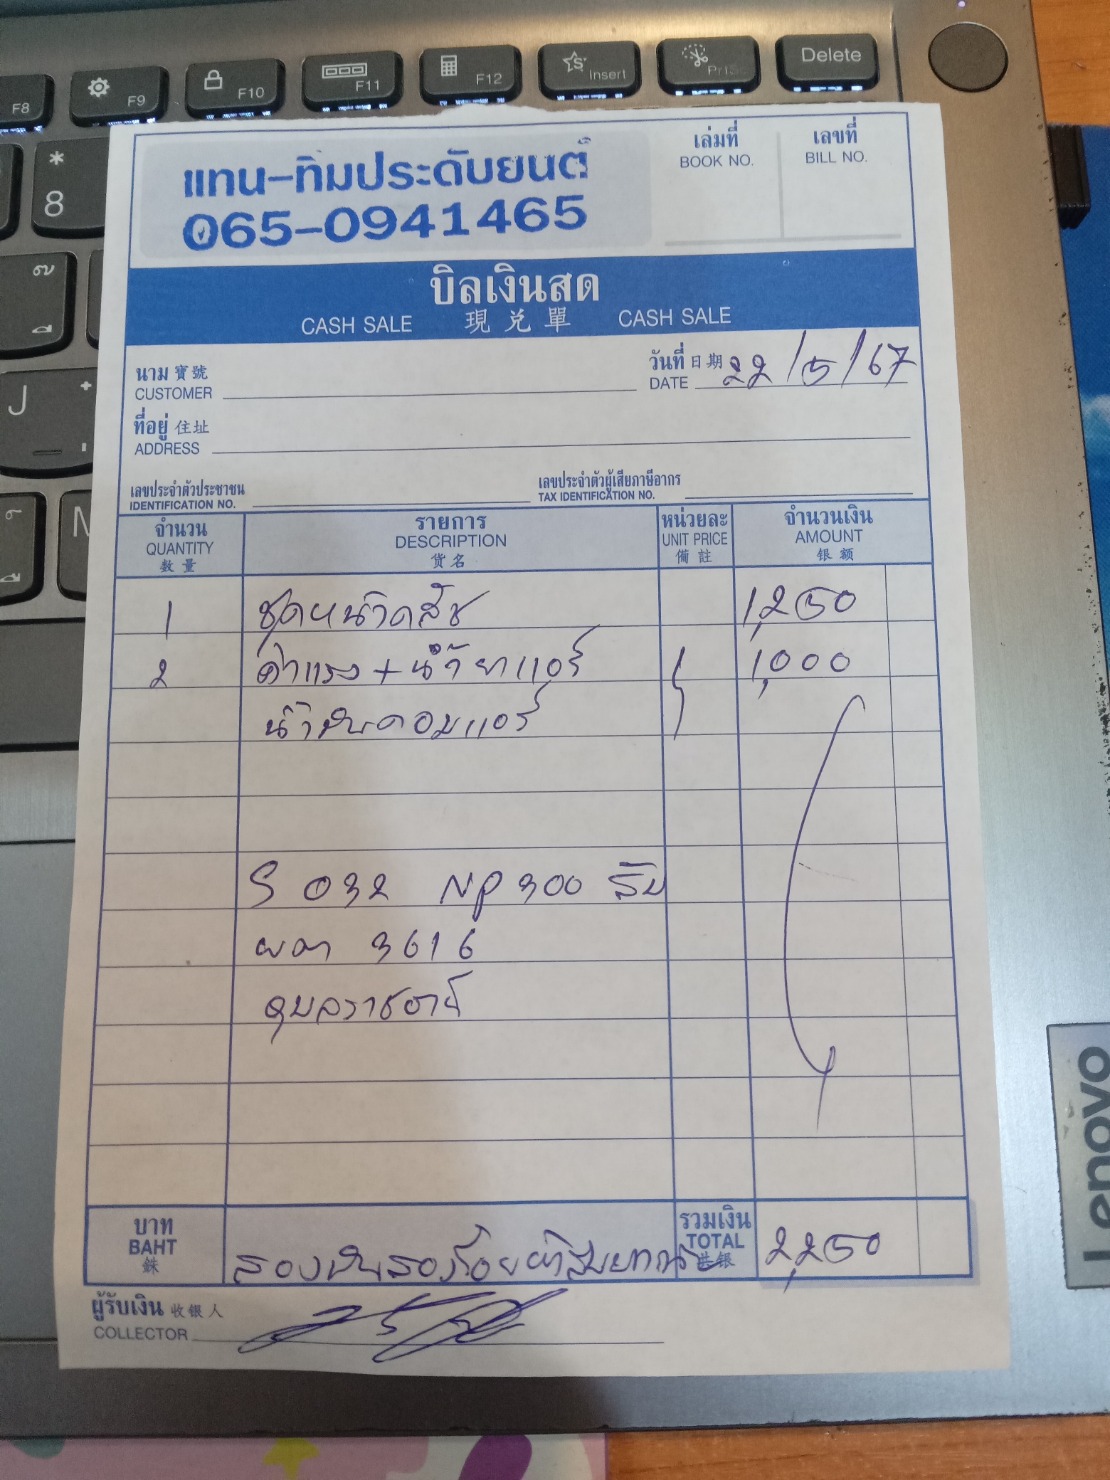 F8
F9
F10
F11
F12
Insert
PrtSc
Delete
*
8
J
M
แทน-ทิมประดับยนต์
065-0941465
เล่มที่
BOOK NO.
เลขที่
BILL NO.
บิลเงินสด
CASH SALE 現兑單 CASH SALE
นาม 寶號
CUSTOMER
วันที่ 日期 22/5/67
DATE
ที่อยู่ 住址
ADDRESS
เลขประจำตัวประชาชน
IDENTIFICATION NO.
เลขประจำตัวผู้เสียภาษีอากร
TAX IDENTIFICATION NO.
จำนวน รายการ หน่วยละ จำนวนเงิน
QUANTITY DESCRIPTION UNIT PRICE AMOUNT
數量 货名 備註 银额
1 ชุดหน้าคลัช 1,250
2 ค่าแรง + น้ำยาแอร์ 1,000
น้ำมันคอมแอร์
S 032 NP 300
ผต 3616
อุบลราชธานี
บาท
BAHT
銖
สองพันสองร้อยห้าสิบบาทถ้วน
รวมเงิน
TOTAL 2,250
ผู้รับเงิน 收银人
COLLECTOR
Lenovo